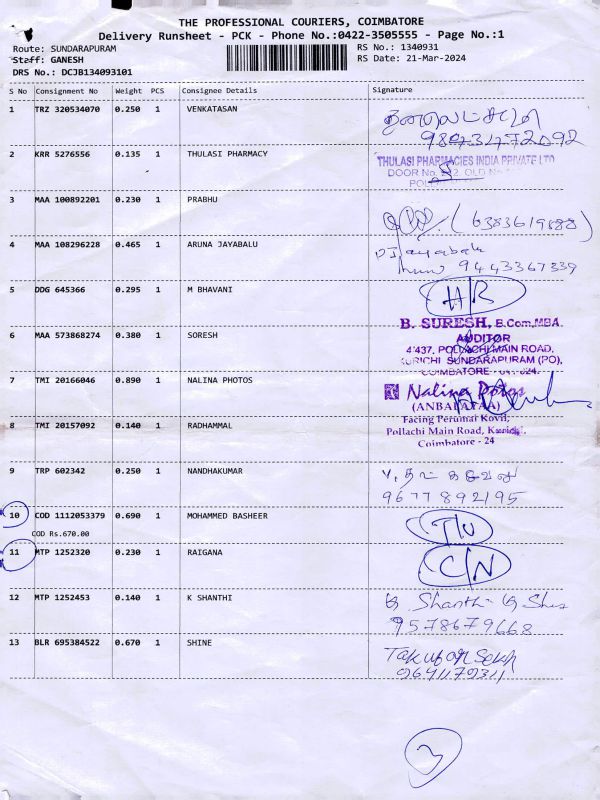 THE PROFESSIONAL COURIERS, COIMBATORE
Delivery Runsheet - PCK - Phone No.:0422-3505555 - Page No.:1
Route: SUNDARAPURAM
RS No.: 1340931
Staff: GANESH
RS Date: 21-Mar-2024
DRS No.: DCJB134093101
S No Consignment No Weight PCS Consignee Details Signature
1 TRZ 320534070 0.250 1 VENKATASAN
2 KRR 5276556 0.135 1 THULASI PHARMACY
THULASI PHARMACIES INDIA PRIVATE LTD
DOOR No.
3 MAA 100892201 0.230 1 PRABHU
(6383619888)
4 MAA 108296228 0.465 1 ARUNA JAYABALU
9443367339
5 DDG 645366 0.295 1 M BHAVANI H/B
B. SURESH, B.Com,MBA.
AUDITOR
6 MAA 573868274 0.380 1 SORESH
4/437, POLLACHI MAIN ROAD,
KURICHI SUNDARAPURAM (PO),
COIMBATORE - 641 024.
7 TMI 20166046 0.890 1 NALINA PHOTOS
Nalina Potos
(ANBALAYAA)
Facing Perumal Kovil,
8 TMI 20157092 0.140 1 RADHAMMAL
Pollachi Main Road, Kurichi,
Coimbatore - 24
9 TRP 602342 0.250 1 NANDHAKUMAR
9677892195
10 COD 1112053379 0.690 1 MOHAMMED BASHEER
COD Rs.670.00
11 MTP 1252320 0.230 1 RAIGANA C/N
12 MTP 1252453 0.140 1 K SHANTHI
Shanthi
9578679668
13 BLR 695384522 0.670 1 SHINE
9641179311